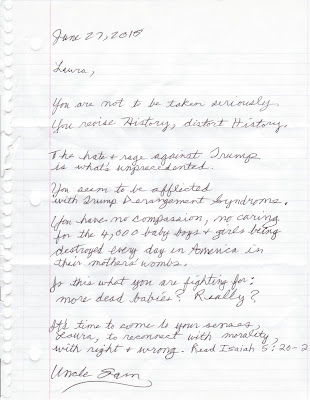 June 27, 2018
Laura,
You are not to be taken seriously.
You revise History, distort History.
The hate & rage against Trump
is what's unprecedented.
You seem to be afflicted
with Trump Derangement Syndrome.
You have no compassion, no caring
for the 4,000 baby boys & girls being
destroyed every day in America in
their mothers' wombs.
Is this what you are fighting for:
more dead babies? Really?
It's time to come to your senses,
Laura, to reconnect with morality,
with right & wrong. Read Isaiah 5:20-2
Uncle Sam